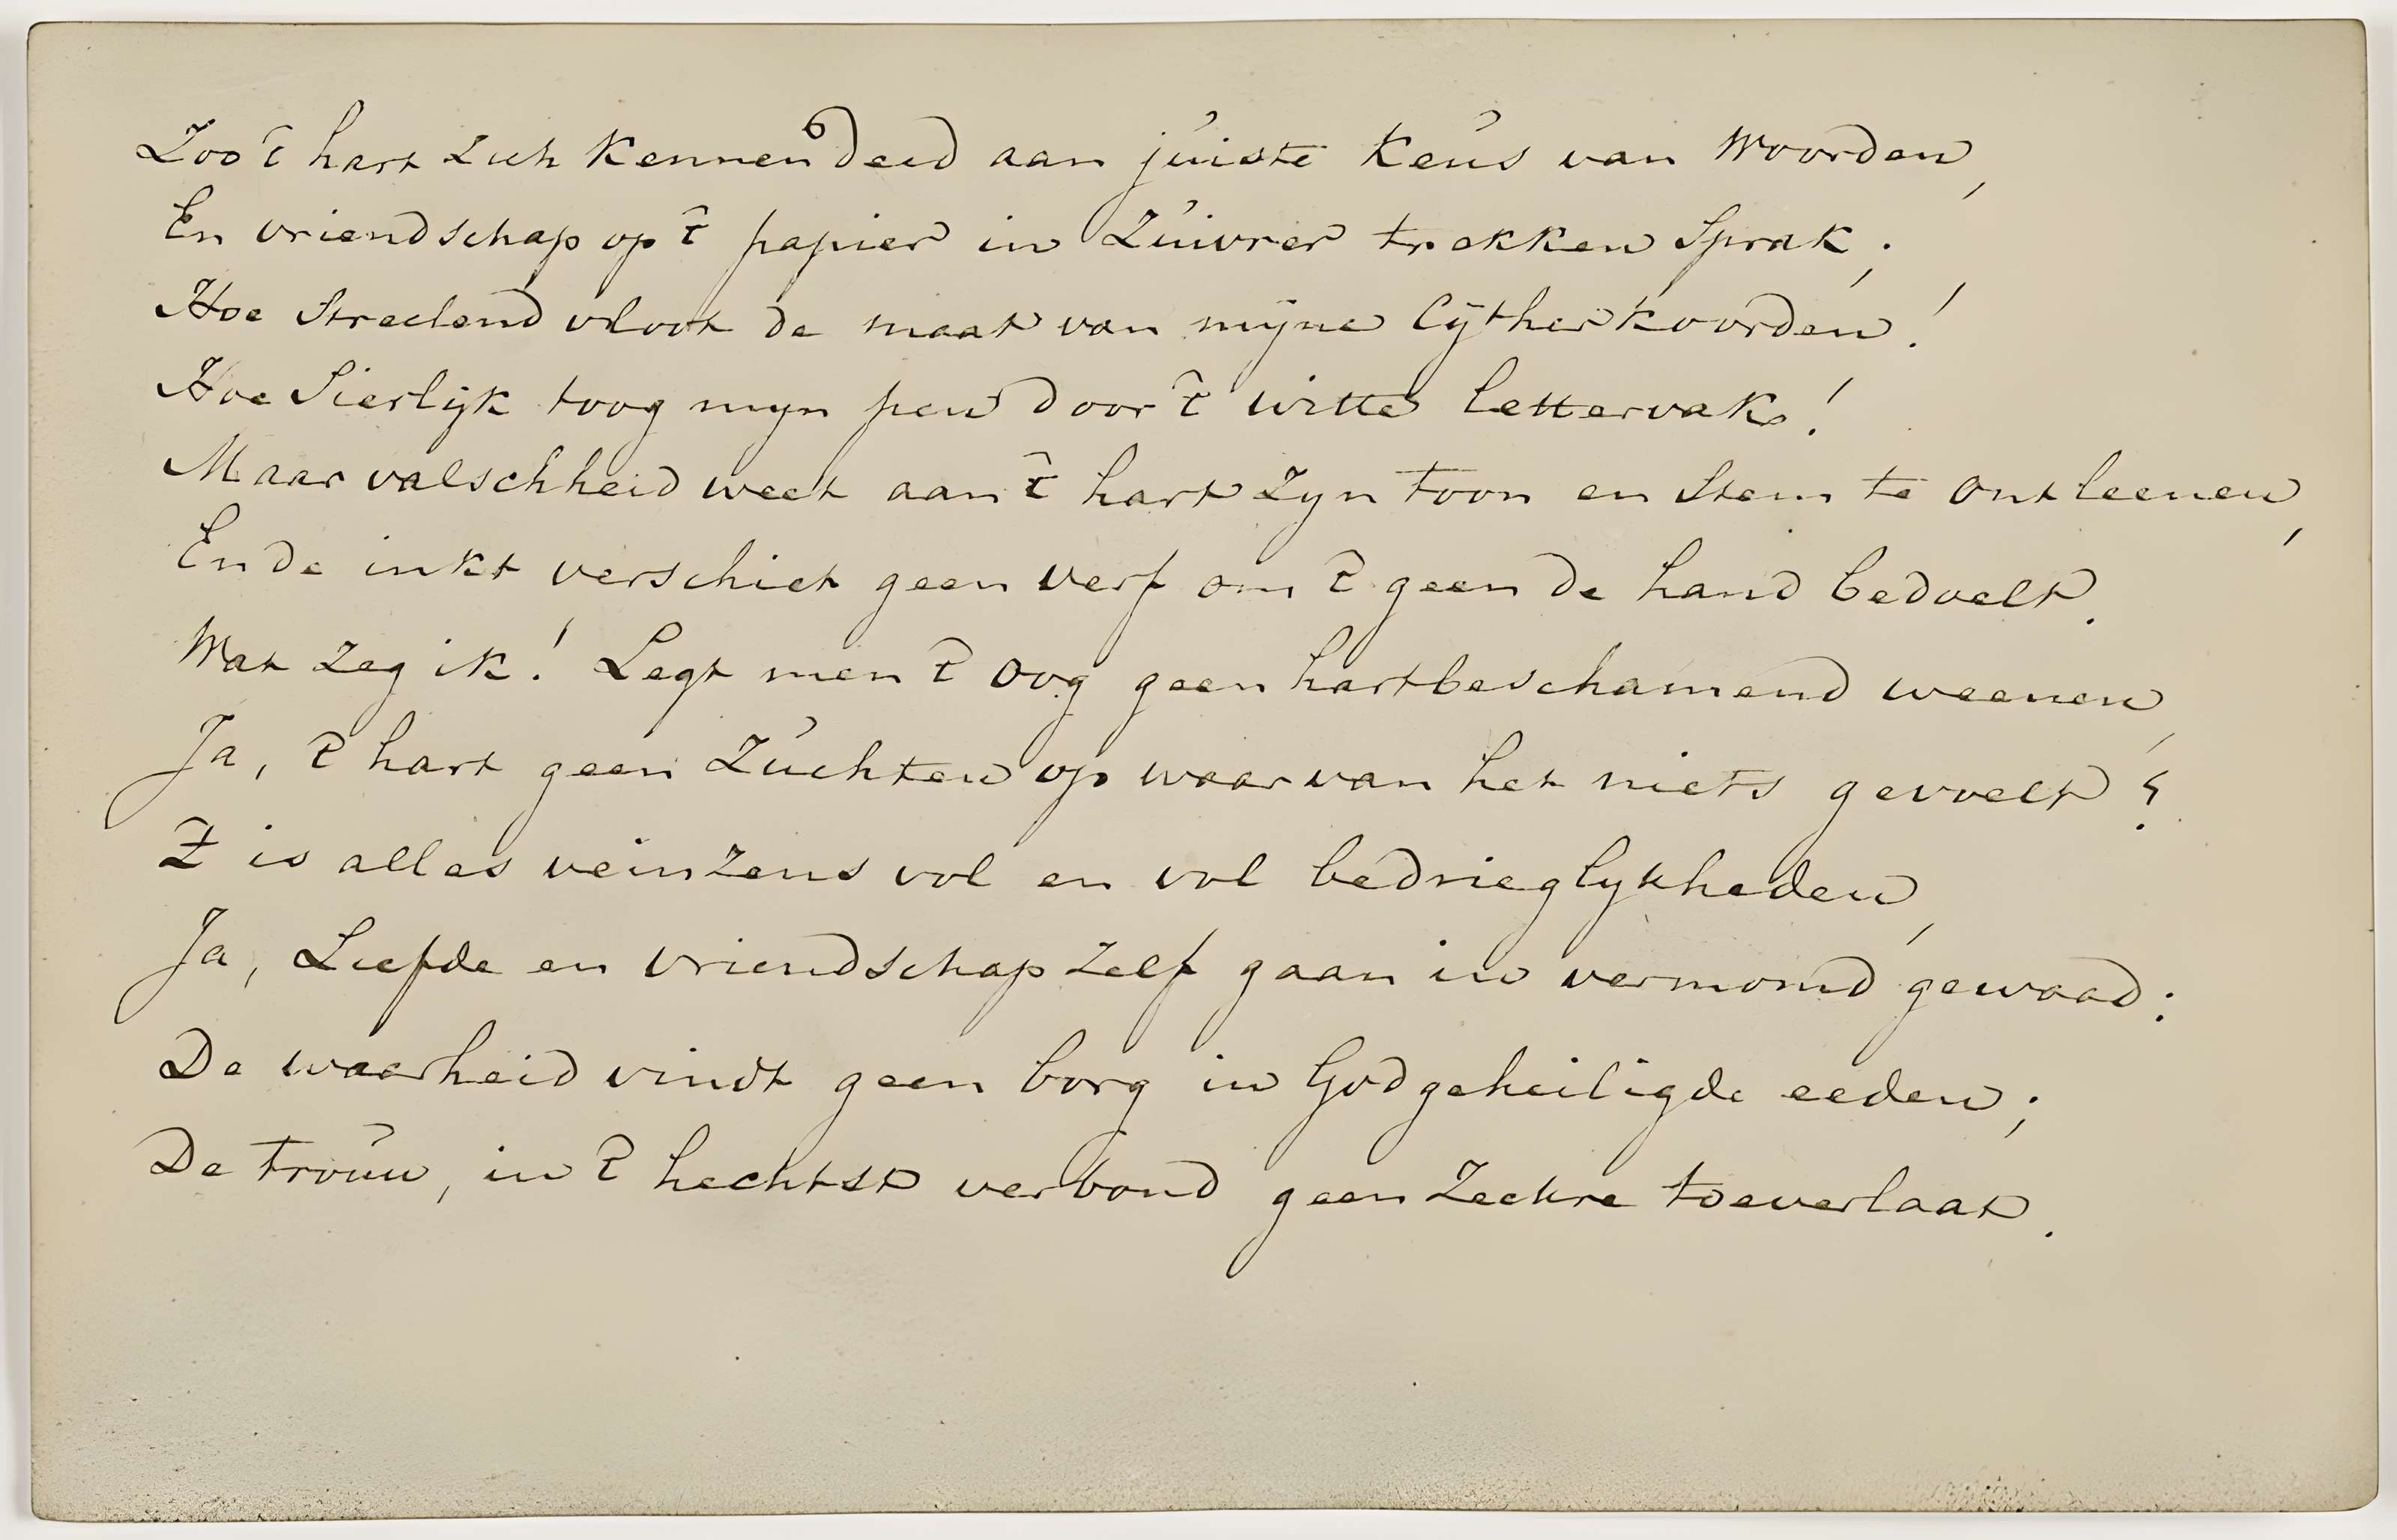 Zoo 't hart zich kennen deed aan juiste keus van woorden,
En vriendschap op 't papier in zuivrer trekken sprak;
Hoe streelend vloot de maat van mijne Cÿtherkoorden!
Hoe sierlijk toog myn pen door 't witte lettervak!
Maar valschheid weet aan 't hart zyn toon en stem te ontleenen,
En de inkt verschiet geen verf om 't geen de hand bedoelt.
Wat zeg ik! Legt men 't oog geen hartbeschamend weenen,
Ja, 't hart geen zuchten op waarvan het niets gevoelt?
't is alles veinzens vol en vol bedrieglykheden,
Ja, Liefde en vriendschap zelf gaan in vermomd gewaad:
De waarheid vindt geen borg in Godgeheiligde eeden;
De trouw, in 't hechtst verbond geen zeekre toeverlaat.